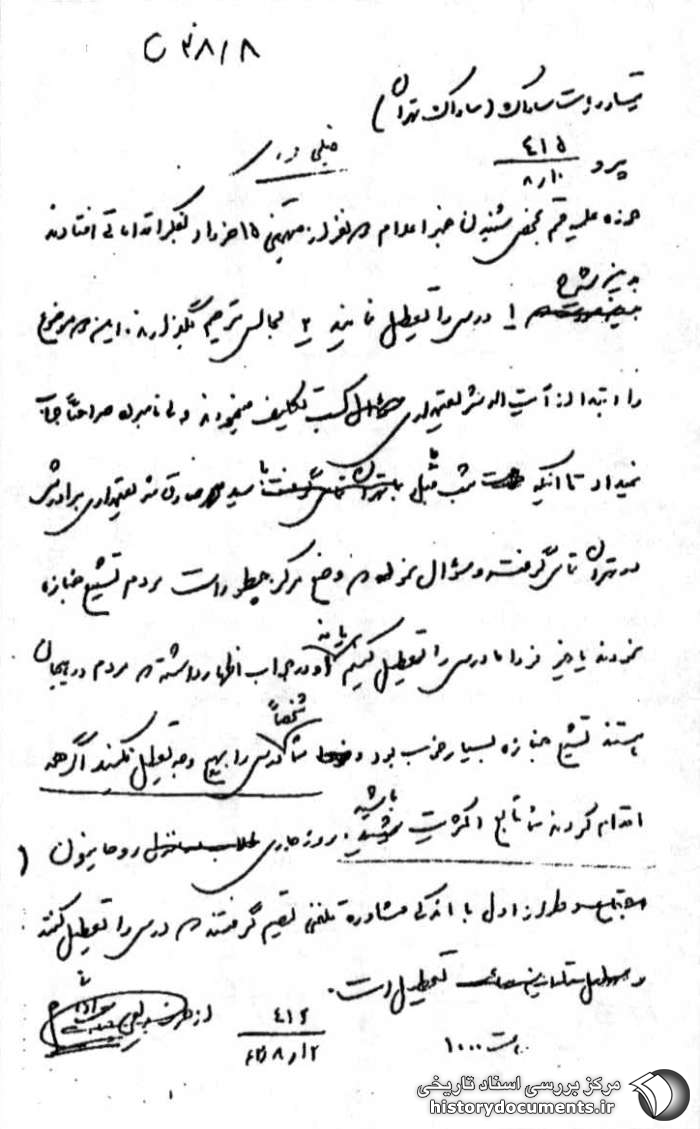 ۳۸/۸
تیمسار ریاست ساواک (ساواک تهران)
خیلی فوری
پیرو ۴۱۵
۸/۱۰
حوزه علمیه قم بمحض شنیدن خبر اعدام نفر از متهمین ۱۵ خرداد بفکر اقداماتی افتادند
بدین شرح
۱ درس را تعطیل نمایند ۲ مجالس ترحیم بگذارند. این موضوع
را ابتدا از آیت اله شریعتمداری کسب تکلیف مینمودند ولی نامبرده صراحتاً جواب
نمیداد تا اینکه شب قبل با سید صادق شریعتمداری برادرش
در تهران تماس گرفته و سؤال نموده وضع مرکز چطور است مردم تشییع جنازه
نمودند یا خیر فردا ما درس را تعطیل کنیم یا نه او در جواب اظهار داشته مردم در هیجان
هستند تشییع جنازه بسیار خوب بود شما شخصاً درس را بهیچ وجه تعطیل نکنید اگر همه
اقدام کردند شما تابع اکثریت باشید. روز جاری روحانیون (
طراز اول با اندکی مشاوره تلفنی تصمیم گرفتند درس را تعطیل کنند
و تعطیل است.
از طرف
۴۱۶
۸/۱۲
۱۰۰۰
مرکز بررسی اسناد تاریخی
historydocuments.ir